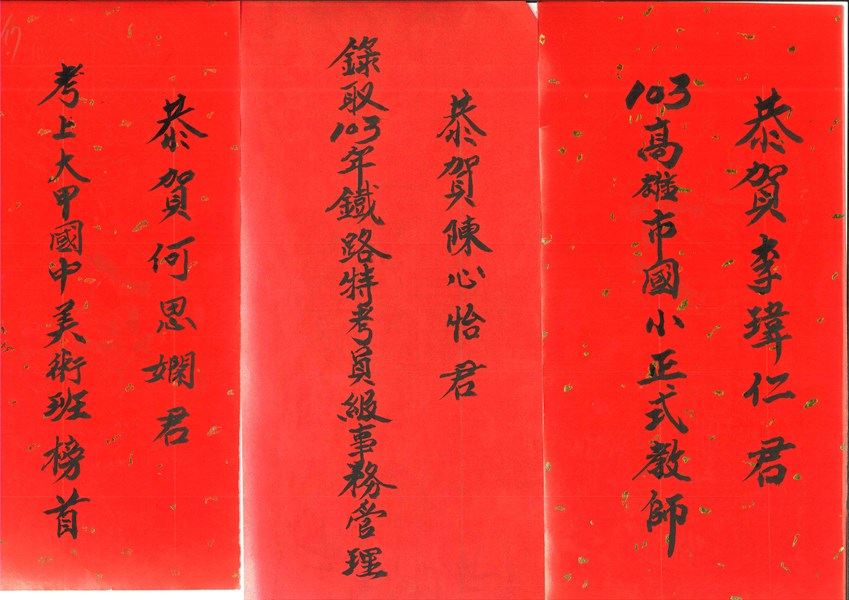 恭賀李瑋仁君
103高雄市國小正式教師
恭賀陳心怡君
錄取103年鐵路特考員級事務管理
恭賀何思嫻君
考上大甲國中美術班榜首